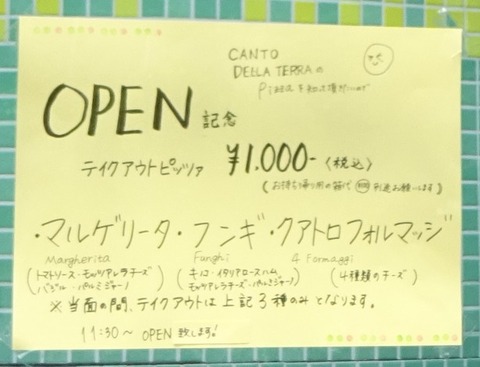 CANTO
DELLA TERRAの
Pizzaを知って頂きたいので
OPEN 記念
テイクアウトピッツァ ¥1.000- 〈税込〉
(お持ち帰り用の箱代 別途お願いします)
・マルゲリータ・フンギ・クアトロフォルマッジ
Margherita Funghi 4 Formaggi
(トマトソース・モッツァレラチーズ (キノコ・イタリアロースハム (4種類のチーズ)
バジル・パルミジャーノ) モッツァレラチーズ・パルミジャーノ)
※当面の間、テイクアウトは上記3種のみとなります。
11:30〜 OPEN致します!